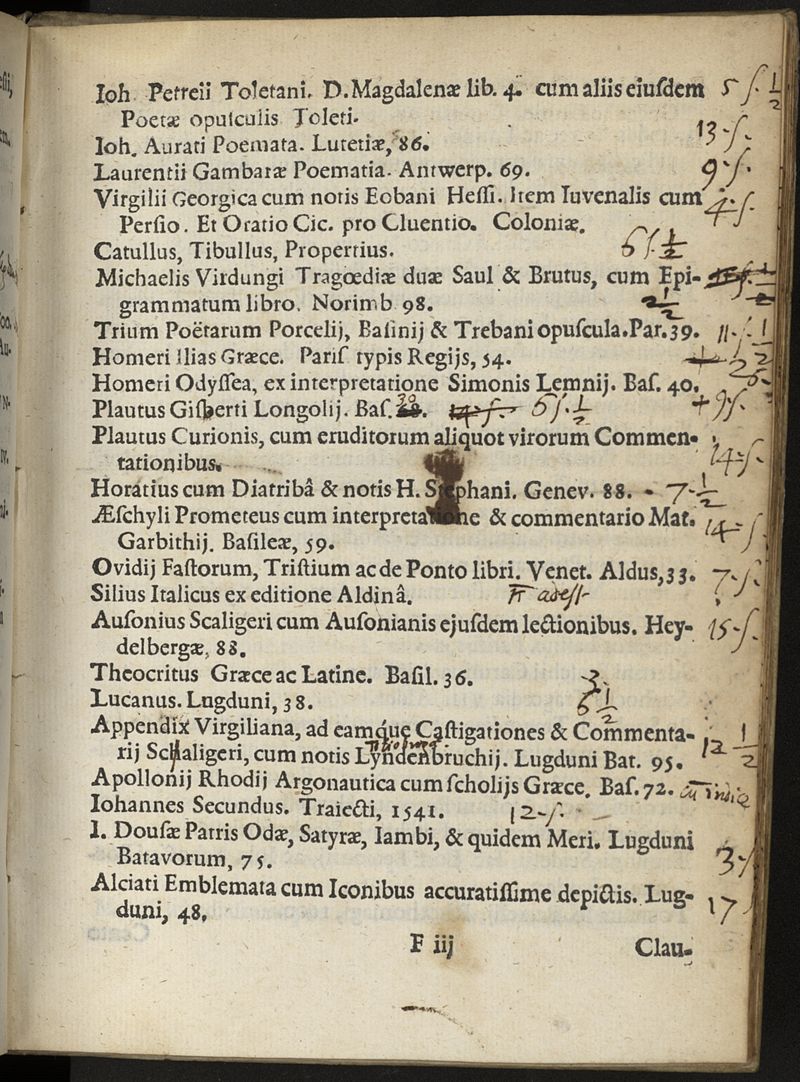 Ioh. Petreii Toletani. D. Magdalenæ lib. 4. cum aliis eiuſdem 5 ſ. ½
Poetæ opuſculis Toleti.
Ioh. Aurati Poemata. Lutetiæ, 86. 13-ſ.
Laurentii Gambaræ Poematia. Antwerp. 69. 9 ſ.
Virgilii Georgica cum notis Eobani Heſſi. Item Iuvenalis cum 4-ſ.
Perſio. Et Oratio Cic. pro Cluentio. Coloniæ.
Catullus, Tibullus, Propertius. 6 ſ. ½
Michaelis Virdungi Tragœdiæ duæ Saul & Brutus, cum Epi-
grammatum libro. Norimb. 98.
Trium Poëtarum Porcelij, Baſinij & Trebani opuſcula. Par. 39. 11-ſ. ½
Homeri Ilias Græce. Pariſ typis Regijs, 54.
Homeri Odyſſea, ex interpretatione Simonis Lemnij. Baſ. 40.
Plautus Giſberti Longolij. Baſ. 6 ſ. ½ + 9 ſ.
Plautus Curionis, cum eruditorum aliquot virorum Commen-
tationibus. 14-ſ.
Horatius cum Diatribâ & notis H. Stephani. Genev. 88. 7-½
Æſchyli Prometeus cum interpretatione & commentario Mat. 14-ſ.
Garbithij. Baſileæ, 59.
Ovidij Faſtorum, Triſtium ac de Ponto libri. Venet. Aldus, 33. 7-ſ.
Silius Italicus ex editione Aldinâ.
Auſonius Scaligeri cum Auſonianis ejuſdem lectionibus. Hey- 15-ſ.
delbergæ, 88.
Theocritus Græce ac Latine. Baſil. 36. 3.
Lucanus. Lugduni, 38. 6 ½
Appendix Virgiliana, ad eamque Caſtigationes & Commenta- 12 ½
rij Scaligeri, cum notis Lyndenbruchij. Lugduni Bat. 95.
Apollonij Rhodij Argonautica cum ſcholijs Græce. Baſ. 72.
Iohannes Secundus. Traiecti, 1541. 12-ſ.
I. Douſæ Patris Odæ, Satyræ, Iambi, & quidem Meri. Lugduni 3 ſ
Batavorum, 75.
Alciati Emblemata cum Iconibus accuratiſſime depictis. Lug- 17
duni, 48.
F iij Clau-